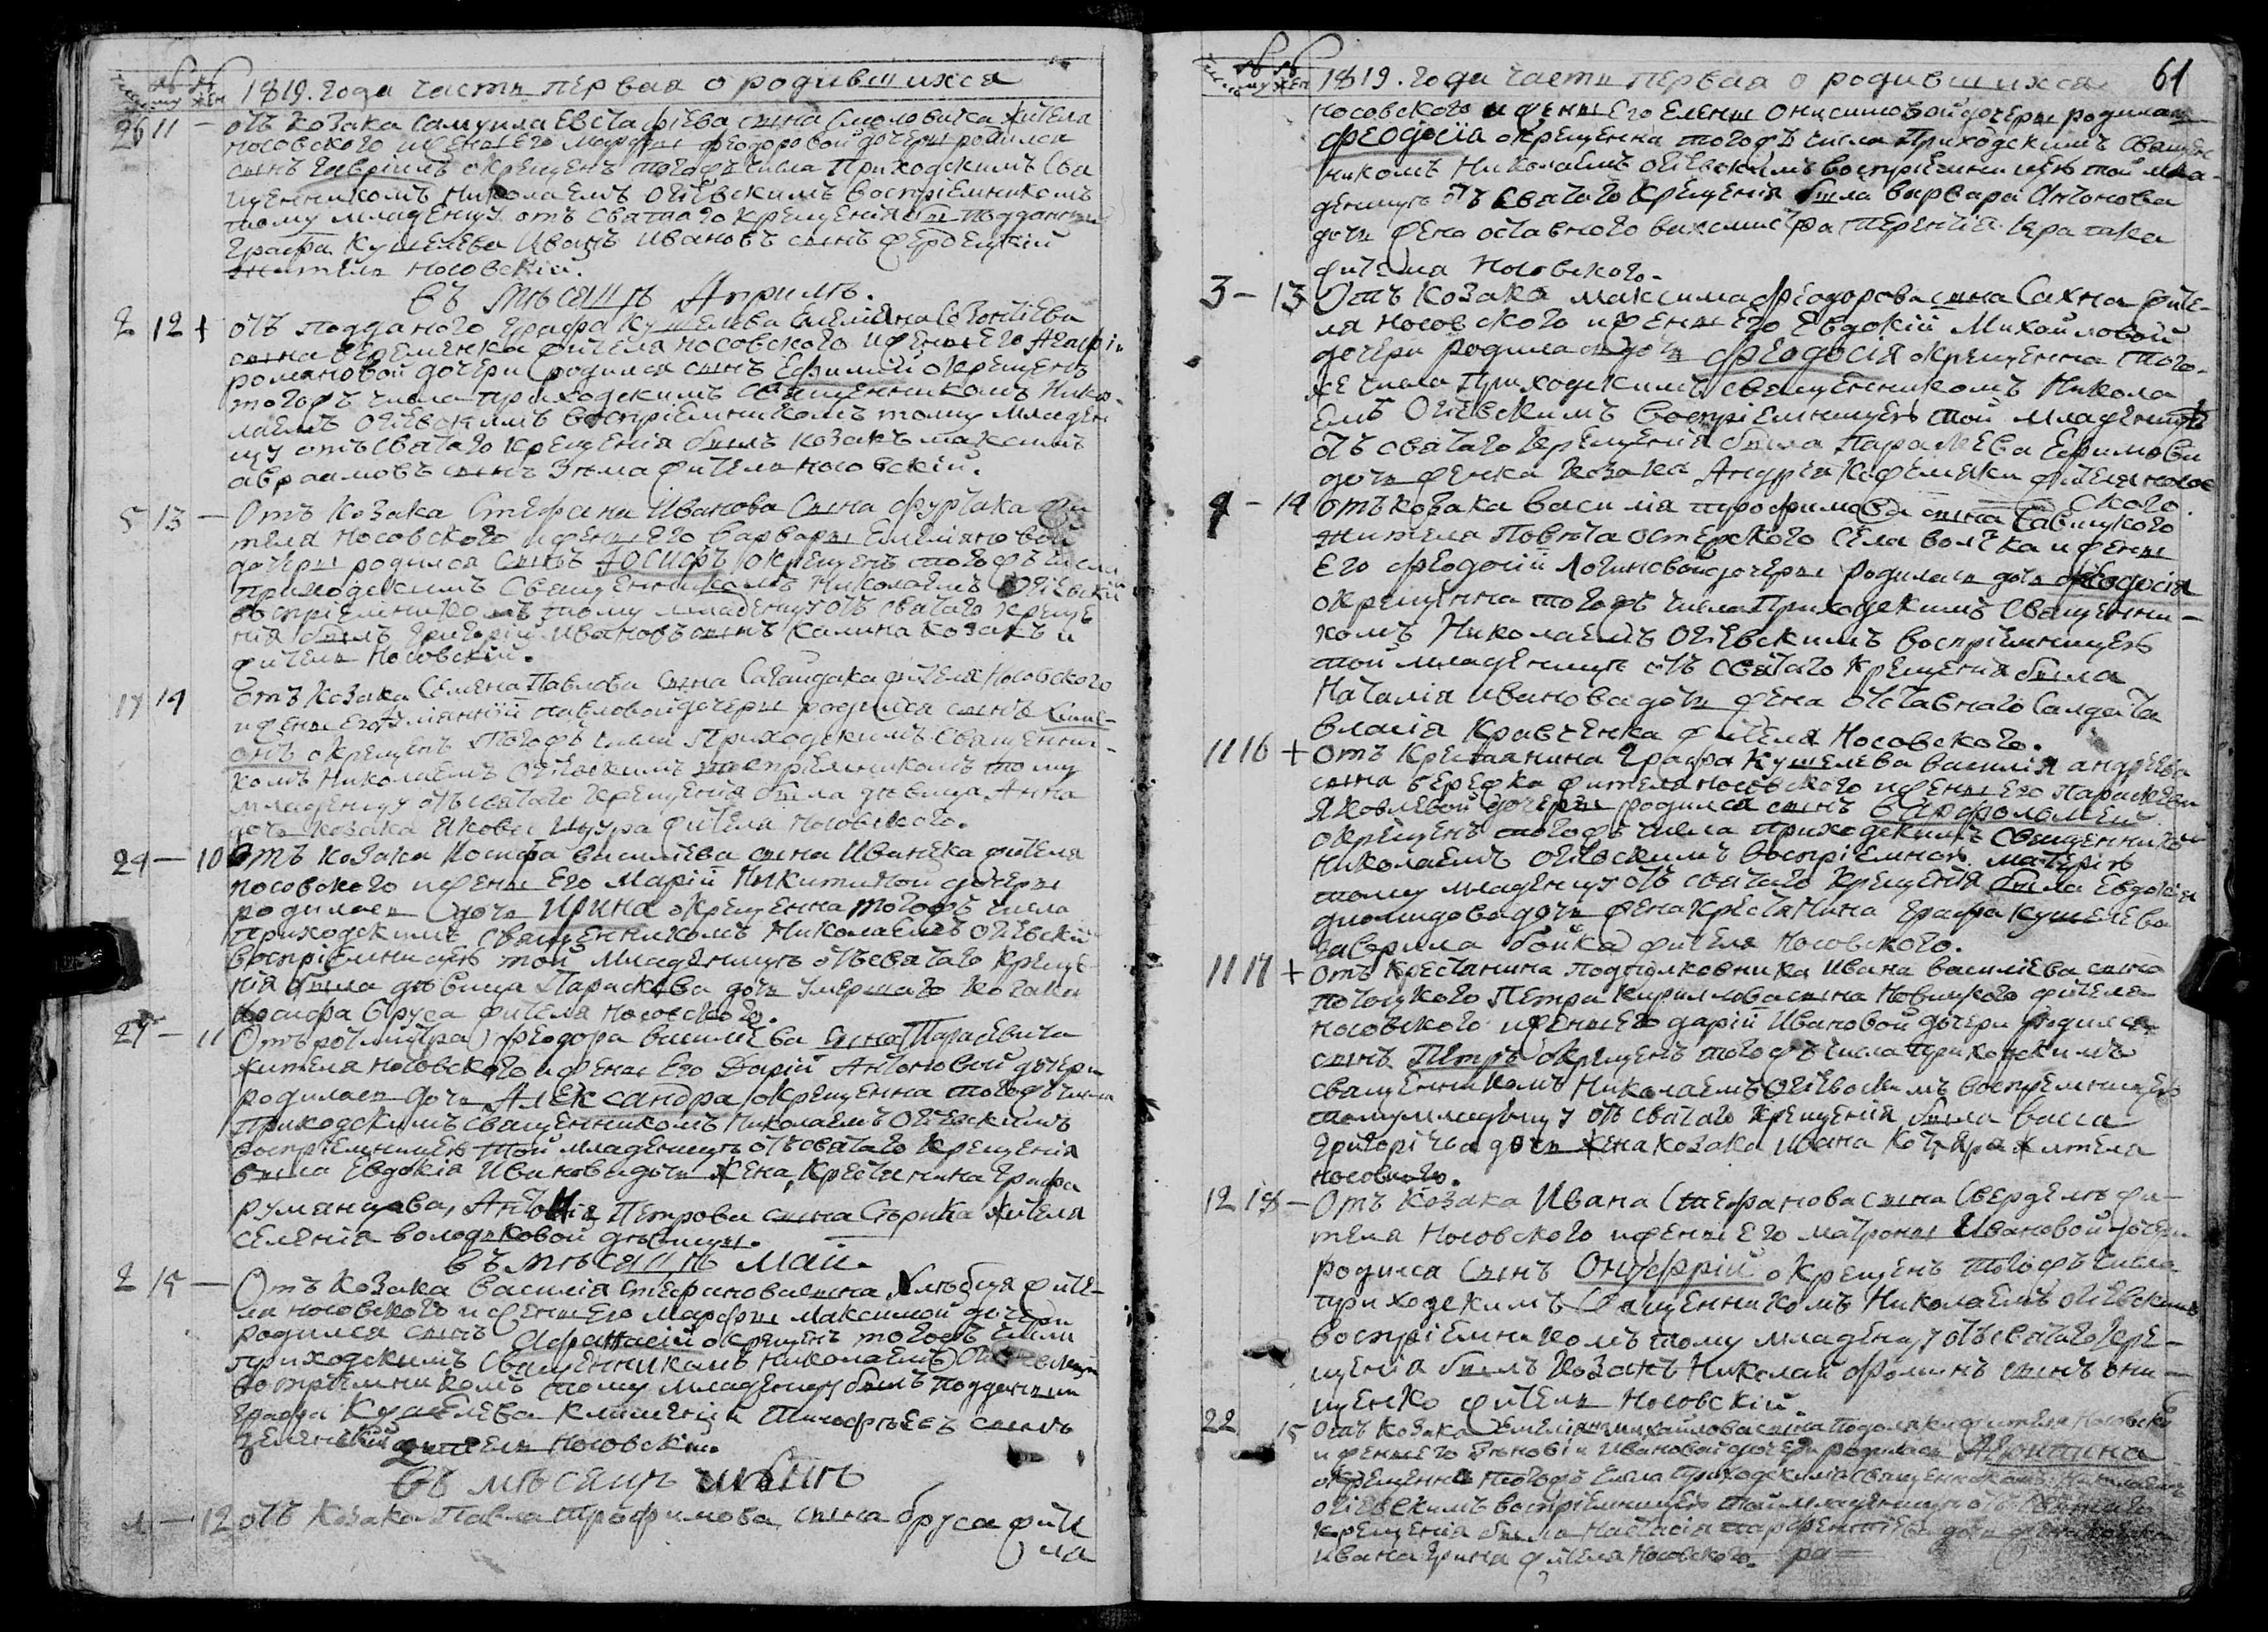 1819. года часть первая о родившихся
26 11 – отъ козака Самуила Евстафіева сына Смоловика жителя
носовского и жены его Марфы Феодоровой дочеры родился
сынъ Гавріилъ окрещенъ тогожъ числа Приходскимъ Сва
щенникомъ Николаемъ Огіевскимъ воспріемникомъ
тому младенцу отъ Святаго крещенія
Графа Кушелева Иванъ Ивановъ сынъ
житель носовскій.
въ мѣсяцѣ Априлѣ.
2 12 + отъ подданого Графа Кушелева Емеліяна Леонтіева
сына Веременка жителя носовского и жены его Агафіи
романовой дочери родился сынъ Ефимій окрещенъ
тогожъ числа приходскимъ Священникомъ Нико-
лаемъ Огіевскимъ воспріемникомъ тому младен
цу отъ Святаго крещенія былъ козакъ максимъ
авраамовъ сынъ Зима житель носовскій.
5 13 – Отъ козака Стефана Иванова Сына Фурсака жи
теля носовского и жены его варвары Емеліяновой
дочеры родился сынъ Іосифъ окрещенъ тогожъ числа
приходскимъ Священникомъ Николаемъ Огіевскій
воспріемникомъ тому младенцу отъ святаго креще
нія былъ Григорій Ивановъ сынъ Калина козакъ и
житель Носовскій.
17 14 отъ козака Семена Павлова Сына Сагайдака жителя Носовского
и жены его павловой дочеры родился сынъ Симе-
онъ окрещенъ тогожъ числа Приходскимъ Священни-
комъ Николаемъ Огіевскимъ воспріемникомъ тому
младенцу отъ святаго крещенія была дѣвица Анна
дочь козака Якова жителя Носовского.
24 – 10 Отъ козака Іосифа василіева сына Иванека жителя
носовского и жены его Маріи Никитиной дочеры
родилась дочь Ирина окрещенна тогожъ числа
Приходскимъ Священникомъ Николаемъ Огіевскій
воспріемницею той Младеницѣ отъ святаго креще
нія была дѣвица Параскева дочь умершаго козака
Іосифа Бруса жителя Носовского.
27 – 11 Отъ ротмистра Феодора василіева сына Тарасевича
жителя носовского и жены его Даріи Антоновой дочери
родилась дочь Александра окрещенна тогожъ числа
Приходскимъ священникомъ Николаемъ Огіевскимъ
воспріемницею той младеницѣ отъ святаго крещенія
была Евдокія Иванова дочь жена, крестянина Графа
румянцова, Антонія Петрова сына Стрика жителя
селенія володковой дѣвицы.
въ мѣсяцѣ маи.
2 15 – Отъ козака василія Стефанова сына Хлѣбця жите-
ля носовского и жены его Марфы Максимой дочери
родился сынъ Афанасій окрещенъ тогожъ числа
приходскимъ Священникомъ Николаемъ Огіевскимъ
воспріемникомъ тому младенцу былъ подданный
Графа Кушелева Климентій Тимофѣевъ сынъ
Зеленскій житель Носовскій.
въ мѣсяцѣ июнѣ
1 – 12 отъ козака Павла Трофимова сына бруса жите
ля
61
1819. года часть первая о родившихся
носовского и жены его Елены онисимовой дочеры родилась
Феодосія окрещенна тогожъ числа Приходскимъ Священ
никомъ Николаемъ Огіевскимъ воспріемницею той мла-
деницѣ отъ святаго крещенія была варвара Антонова
дочь жена оставного вахмистра Терентія
жителя Носовского.
3 – 13 Отъ козака максима Феодорова сына Сахна жите-
ля носовского и жены его Евдокіи Михайловой
дочери родилась дочь Феодосія окрещенна того-
же числа Приходскимъ священникомъ Никола
емъ Огіевскимъ воспріемницею той младеницѣ
отъ святаго крещенія была Параскева Ефимова
дочь женка козака Андрія Кожемяки жителя носов
ского.
4 – 14 отъ козака василія трофимова сына Савицкого
жителя Повѣта остерского села волчка и жены
его Феодосіи Логиновой дочеры родилась дочь Феодосія
окрещенна тогожъ числа Приходскимъ Священни-
комъ Николаемъ Огіевскимъ воспріемницею
той младеницѣ отъ святаго крещенія была
Наталія иванова дочь жена отставнаго Салдата
власія Кравченка жителя Носовского.
11 16 + Отъ крестянина Графа Кушелева василія андреева
сына бережка жителя носовского и жены его Параскевы
яковлевой дочеры родился сынъ варфоломей
окрещенъ тогожъ числа приходскимъ Священником
николаемъ Огіевскимъ воспріемной матерію
тому младенцу отъ святаго крещенія была Евдокія
диомидова дочь жена крестянина Графа Кушелева
гаврила бойка жителя Носовского.
11 17 + Отъ крестянина подполковника Ивана василіева сына
Петра кирилова сына Новицкого жителя
носовского и жены его даріи Ивановой дочери родился
сынъ Петръ окрещенъ тогожъ числа приходскимъ
священникомъ Николаемъ Огіевскимъ воспріемницею
тому младенцу отъ святаго крещенія была васса
Григоріева дочь жена козака ивана Котляра жителя
носовского.
12 18 – Отъ козака Ивана Стефанова сына Свердель жи-
теля Носовского и жены его матроны Ивановой дочери
родился сынъ Онуфрій окрещенъ тогожъ числа
приходскимъ Священникомъ Николаемъ Огіевскимъ
воспріемникомъ тому младенцу отъ святаго кре-
щенія былъ козакъ Николай Фоминъ сынъ они-
щенко житель Носовскій.
22 15 Отъ козака Емеліяна михайлова сына Подоляки жителя Носовского
и жены его Зѣновіи Ивановой дочери родилась Агрипина
окрещенна тогожъ числа приходскимъ священникомъ Николаемъ
Огіевскимъ воспріемницею той младеницѣ отъ святаго
крещенія была Настасія парфентіева дочь жена козака
ивана Грина жителя Носовского.